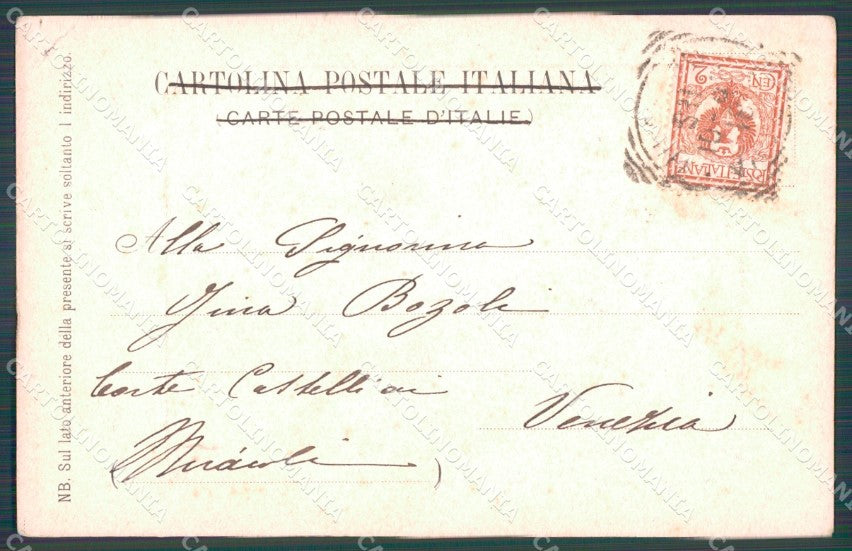 CARTOLINA POSTALE ITALIANA
(CARTE POSTALE D'ITALIE)
NB. Sul lato anteriore della presente si scrive soltanto l indirizzo.
POSTE ITALIANE
Alla Signorina
Gina Bozoli
Corte Castelli ai
Venezia
(Miracoli)
CARTOLINOMANIA